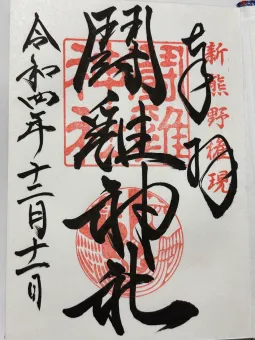 奉拝
新熊野権現
闘雞神社
令和四年十二月十一日